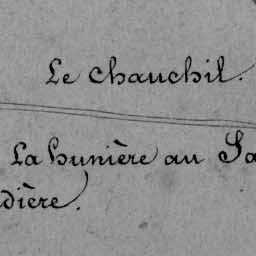 Le Chauchil.
La hunière au Sa
dière.